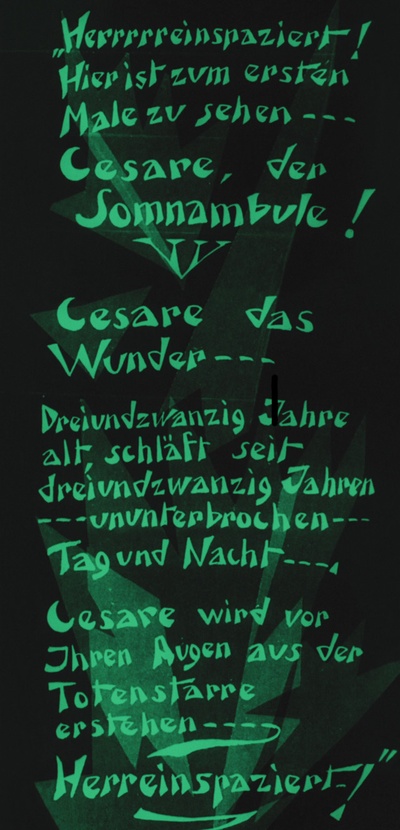 „Herrrrreinspaziert!
Hier ist zum ersten
Male zu sehen ---
Cesare, der
Somnambule!
Cesare das
Wunder---
Dreiundzwanzig Jahre
alt, schläft seit
dreiundzwanzig Jahren
---ununterbrochen---
Tag und Nacht---,
Cesare wird vor
Ihren Augen aus der
Totenstarre
erstehen----
Herreinspaziert-!"